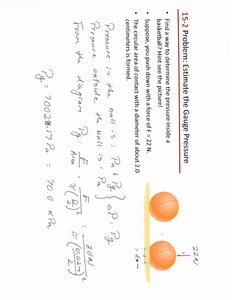 15-2 Problem: Estimate the Gauge Pressure
• Find a way to determine the pressure inside a
basketball? Hint see the picture!
• Suppose, you push down with a force of F = 22 N.
• The circular area of contact with a diameter of about 2.0
centimeters is formed.
22N
2cm
Pressure in the ball is = Pa + Pg
Pressure outside the ball is = Pa
ΔP = Pg
From the diagram Pg = F/Area = F/π(D/2)² = 20N/π(0.02m/2)²
Pg = 70028.17 Pa = 70.0 kPa